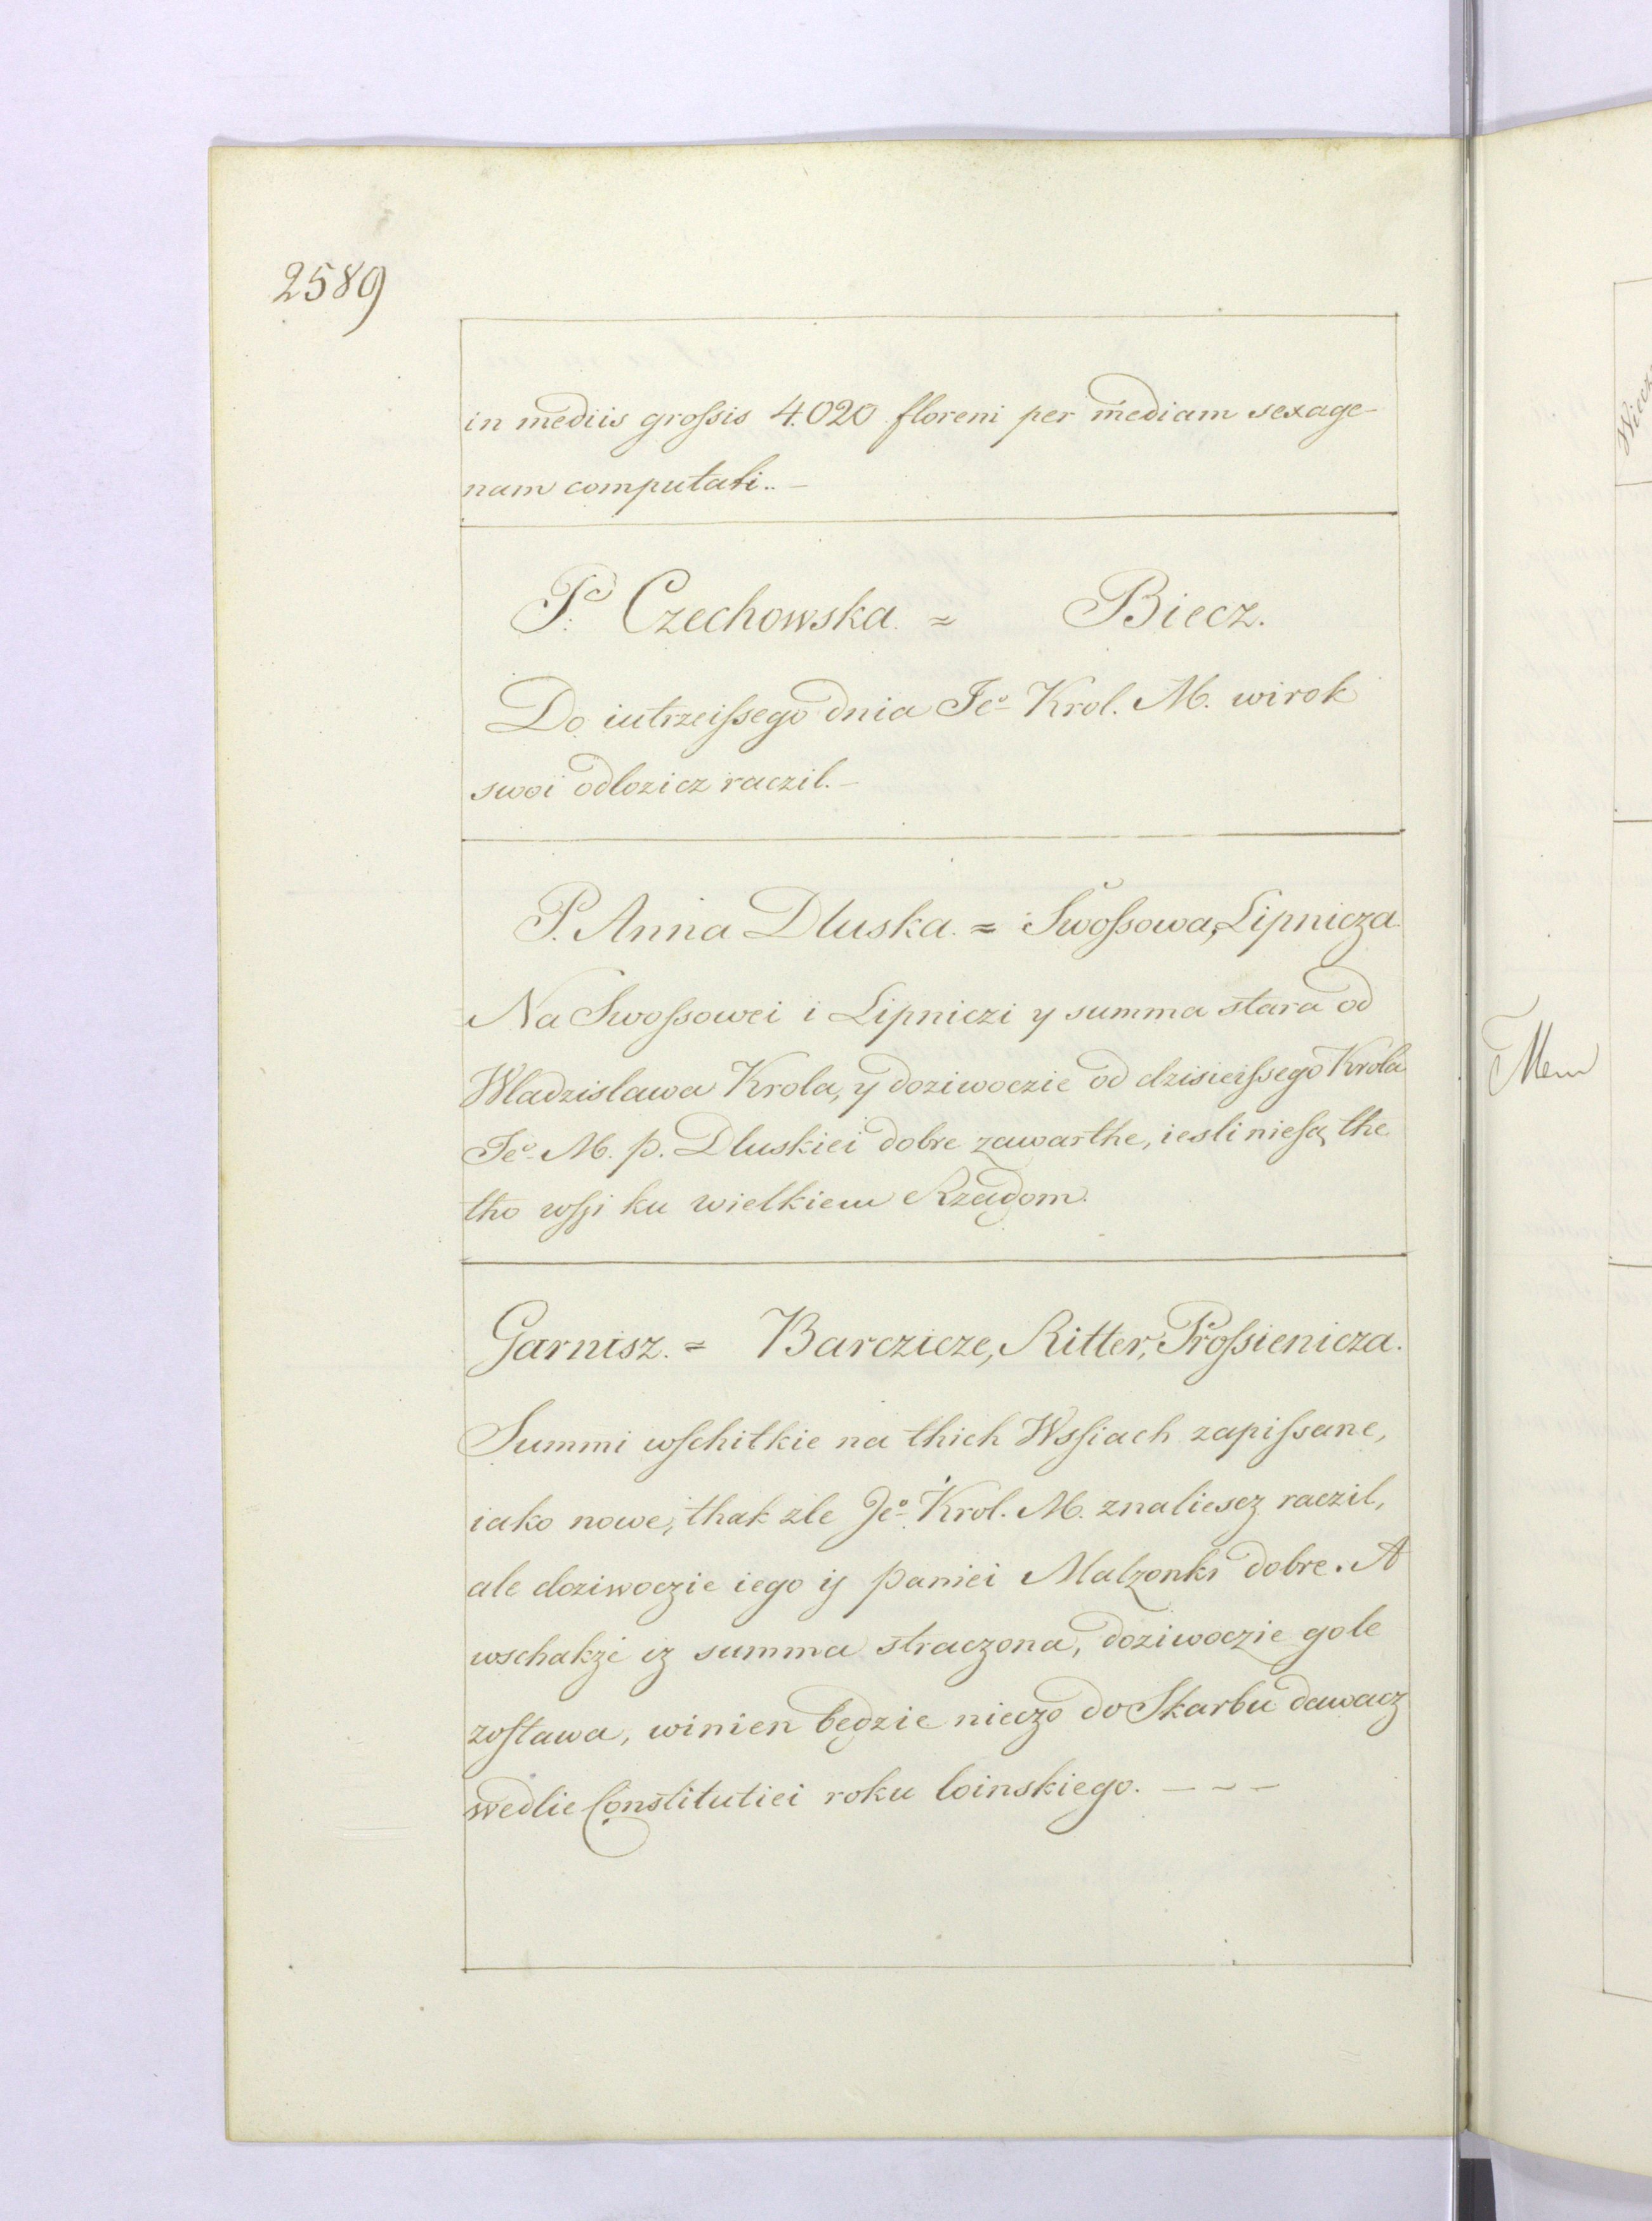 2589
in mediis groſsis 4.020 floreni per mediam sexage-
nam computati.. -
P: Czechowska. = Biecz.
Do iutrzeiſsego dnia Jeº Krol. M. wirok
swoi odlozicz raczil. -
P. Anna Dluska. = Swoſsowa, Lipnicza.
Na Swoſsowei i Lipniczi y summa stara od
Wladzislawa Krola, y doziwoczie od dzisieiſsego Krola
Jeº M. p. Dluskiei dobre zawarthe, iesli nieſą the
tho wſsi ku wielkiem Rzadom.
Garnisz. = Barczicze, Ritter, Proſsienicza.
Summi wſchitkie na thich Wsſiach zapiſsane,
iako nowe, thak zle Jeº Krol. M. znaliescz raczil,
ale doziwoczie iego ij paniei Malzonki dobre. A
wschakże iz summa straczona, doziwoczie gole
zoſtawa, winien będzie nieczo do Skarbu dawacz
wedlie Constitutiei roku loinskiego. - - -
Mem